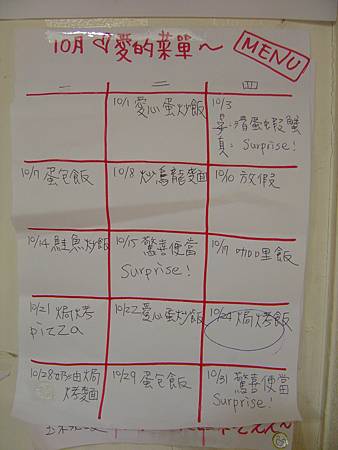 10月 愛的菜單~
MENU
一 二 四
10/1 愛心蛋炒飯
10/3
滑蛋蝦蟹
真: Surprise!
10/7 蛋包飯
10/8 炒烏龍麵
10/10 放假
10/14 鮭魚炒飯
10/15 驚喜便當
Surprise!
10/17 咖哩飯
10/21 焗烤
pizza
10/22 愛心蛋炒飯
10/24 焗烤飯
10/28 奶油焗
烤麵
10/29 蛋包飯
10/31 驚喜便當
Surprise!